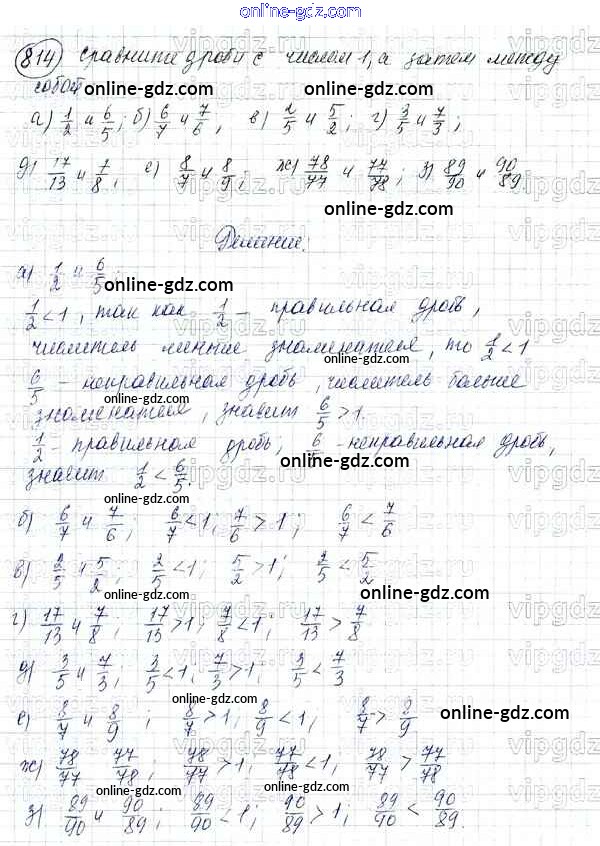 online-gdz.com
814) Сравните дроби с числом 1, а затем между
собой
online-gdz.com online-gdz.com
а) 1/2 и 6/5; б) 6/7 и 7/6, в) 2/5 и 5/2; г) 3/5 и 7/3;
д) 17/13 и 7/8, е) 8/7 и 8/9, ж) 78/77 и 77/78; з) 89/90 и 90/89
online-gdz.com
Решение:
а) 1/2 и 6/5;
online-gdz.com
1/2 < 1, так как 1/2 – правильная дробь,
online-gdz.com
числитель меньше знаменателя, то 1/2 < 1
6/5 – неправильная дробь, числитель больше
знаменателя, значит 6/5 > 1.
online-gdz.com
1/2 – правильная дробь, 6 – неправильная дробь,
online-gdz.com
значит 1/2 < 6/5.
online-gdz.com
б) 6/7 и 7/6; 6/7 < 1; 7/6 > 1; 6/7 < 7/6
online-gdz.com
в) 2/5 и 5/2; 2/5 < 1; 5/2 > 1; 2/5 < 5/2
online-gdz.com
г) 17/13 и 7/8; 17/13 > 1; 7/8 < 1; 17/13 > 7/8
online-gdz.com
д) 3/5 и 7/3; 3/5 < 1; 7/3 > 1; 3/5 < 7/3
online-gdz.com
е) 8/7 и 8/9; 8/7 > 1; 8/9 < 1; 8/7 > 8/9
online-gdz.com
online-gdz.com
ж) 78/77 77/78; 78/77 > 1; 77/78 < 1; 78/77 > 77/78
online-gdz.com
з) 89/90 и 90/89; 89/90 < 1; 90/89 > 1; 89/90 < 90/89.
online-gdz.com